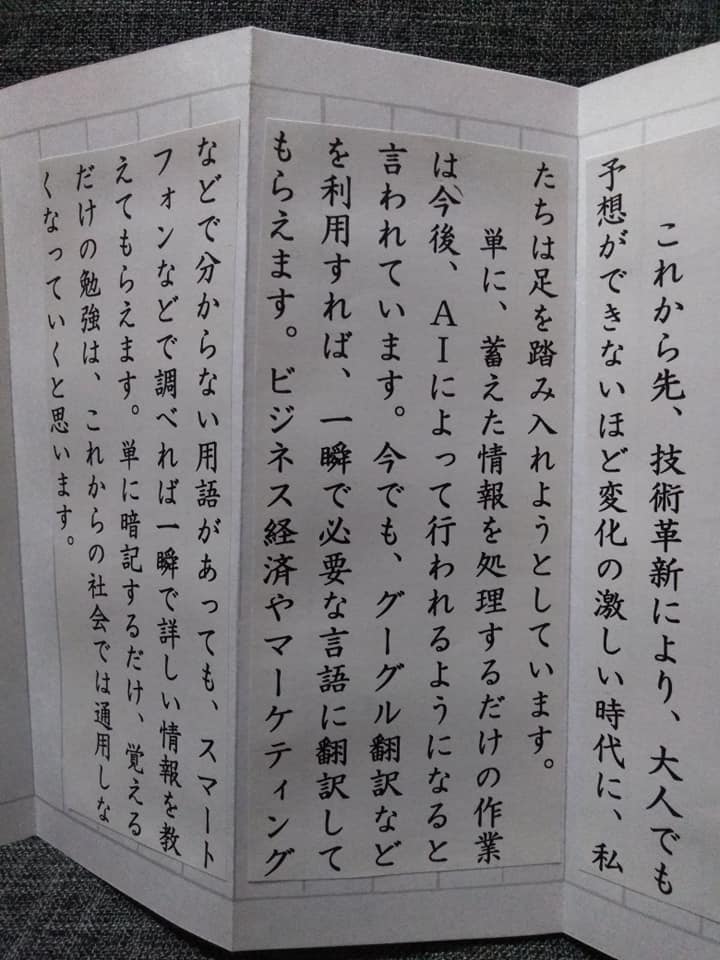 これから先、技術革新により、大人でも
予想ができないほど変化の激しい時代に、私
たちは足を踏み入れようとしています。
単に、蓄えた情報を処理するだけの作業
は今後、AIによって行われるようになると
言われています。今でも、グーグル翻訳など
を利用すれば、一瞬で必要な言語に翻訳して
もらえます。ビジネス経済やマーケティング
などで分からない用語があっても、スマート
フォンなどで調べれば一瞬で詳しい情報を教
えてもらえます。単に暗記するだけ、覚える
だけの勉強は、これからの社会では通用しな
くなっていくと思います。